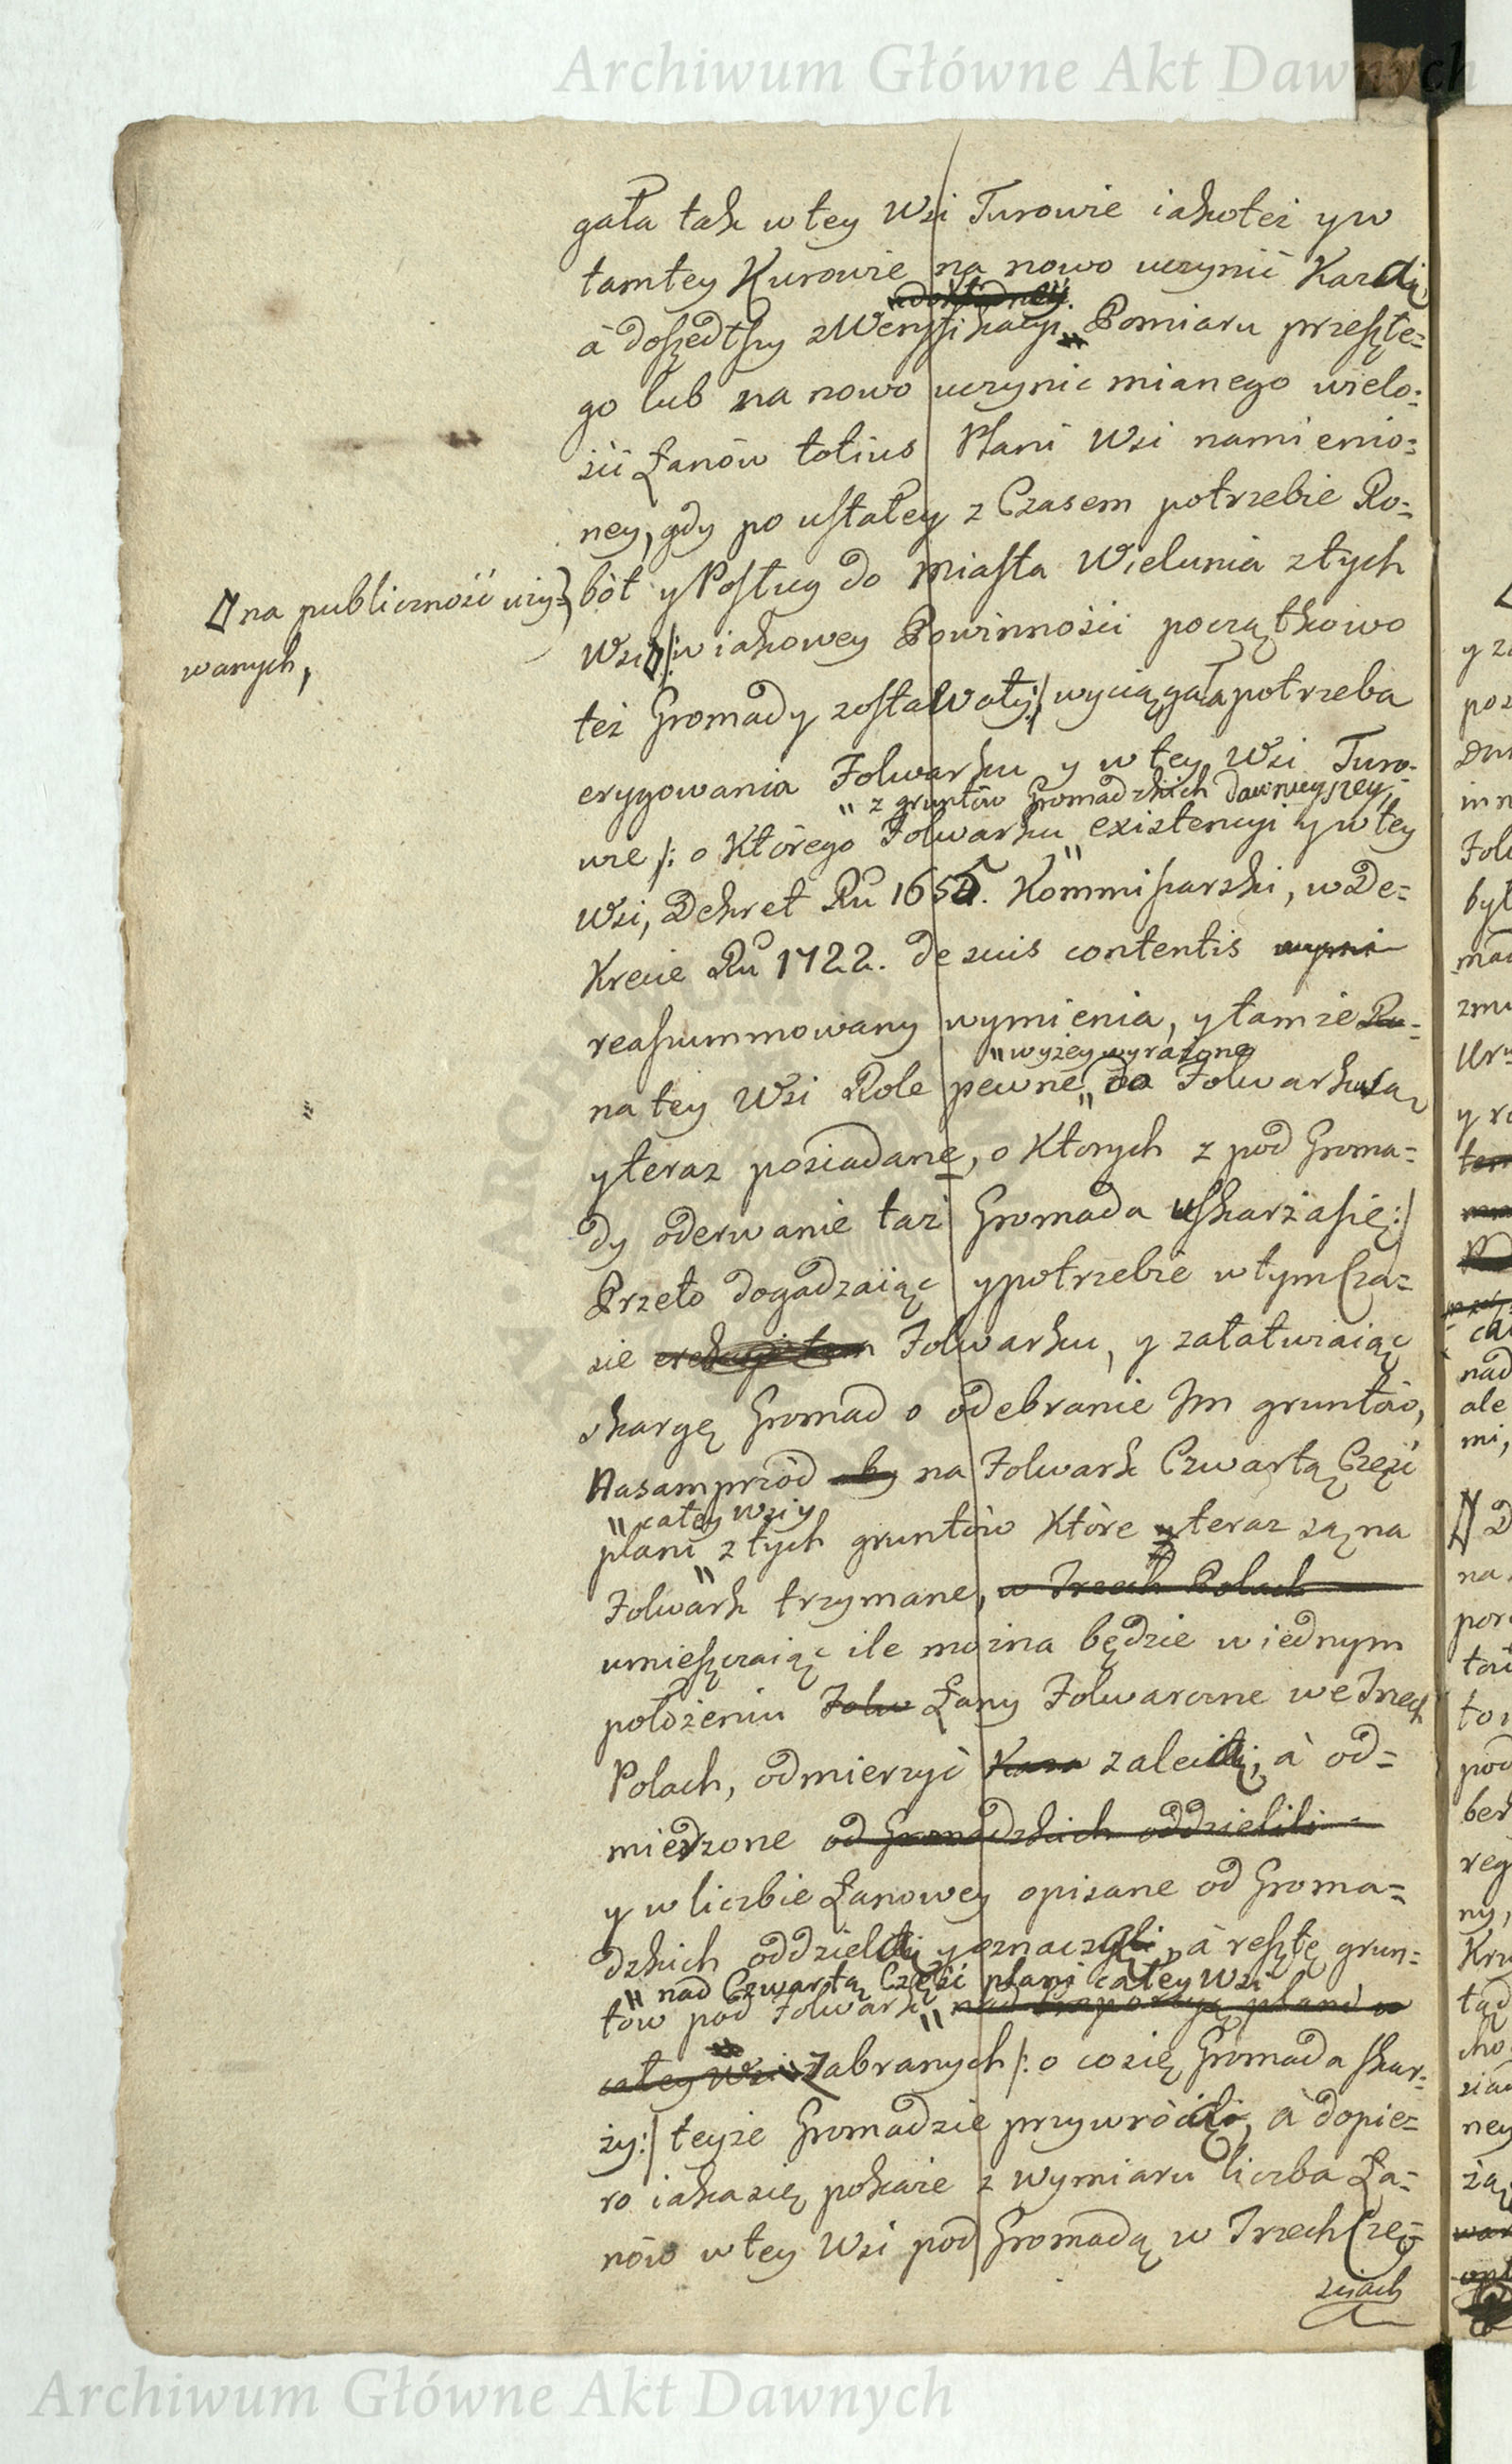 Archiwum Główne Akt Dawnych
gała tak w tey Wsi Turowie iakoteż y w
tamtey Kurowie na nowo uczynić Każdą,
à doszedłszy z Weryfikacyi Pomiaru przeszłe=
go lub na nowo uczynić mianego wielo=
ści Łanów totius Plani Wsi namienio=
ney, gdy po ustałey z Czasem potrzebie Ro=
bót y Posług do Miasta Wielunia z tych
na publiczność uży=
wanych,
Wsi /: w iakowey Powinności początkowo
też Gromady zostawały :/ wyciągała potrzeba
erygowania Folwarku y w tey Wsi Turo=
" z gruntów Gromadzkich dawnieyszey,
wie /: o Którego Folwarku " existencyi y w tey
Wsi, Dekret Ru 1655. Kommissarski, w De=
krecie Ru 1722. de suis contentis wymi
reassummowany wymienia, y tamże Ru=
" wyżey wyrażone
na tey Wsi Role pewne " do Folwarku są
y teraz posiadane, o Których z pod Groma=
dy oderwanie taż Gromada uskarża się :/
Przeto dogadzaiąc y potrzebie w tym Cza=
sie Folwarku, y załatwiaiąc
skargę Gromad o odebranie Im gruntów,
Nasamprzód aby na Folwark Czwartą Część
" całey Wsi y
plani " z tych gruntów Które y teraz są na
Folwark trzymane, w Trzech Polach
umieszczaiąc ile można będzie w iednym
położeniu Folw Łany Folwarczne we Trzech
Polach, odmierzyć Kaza zaleci, à od=
mierzone od Gromadzkich oddzielili
y w liczbie Łanowey opisane od Groma=
dzkich oddzieli y oznaczy, à resztę grun=
" nad Czwartą Część plani całey Wsi
tów pod Folwark " nad proporcyą plani w
całey Wsi Zabranych /: o co się Gromada skar=
ży :/ teyże Gromadzie przywróci, à dopie=
ro iaka się pokaże z wymiaru liczba Ła=
nów w tey Wsi pod Gromadą w Trzech Czę=
ściach
Archiwum Główne Akt Dawnych